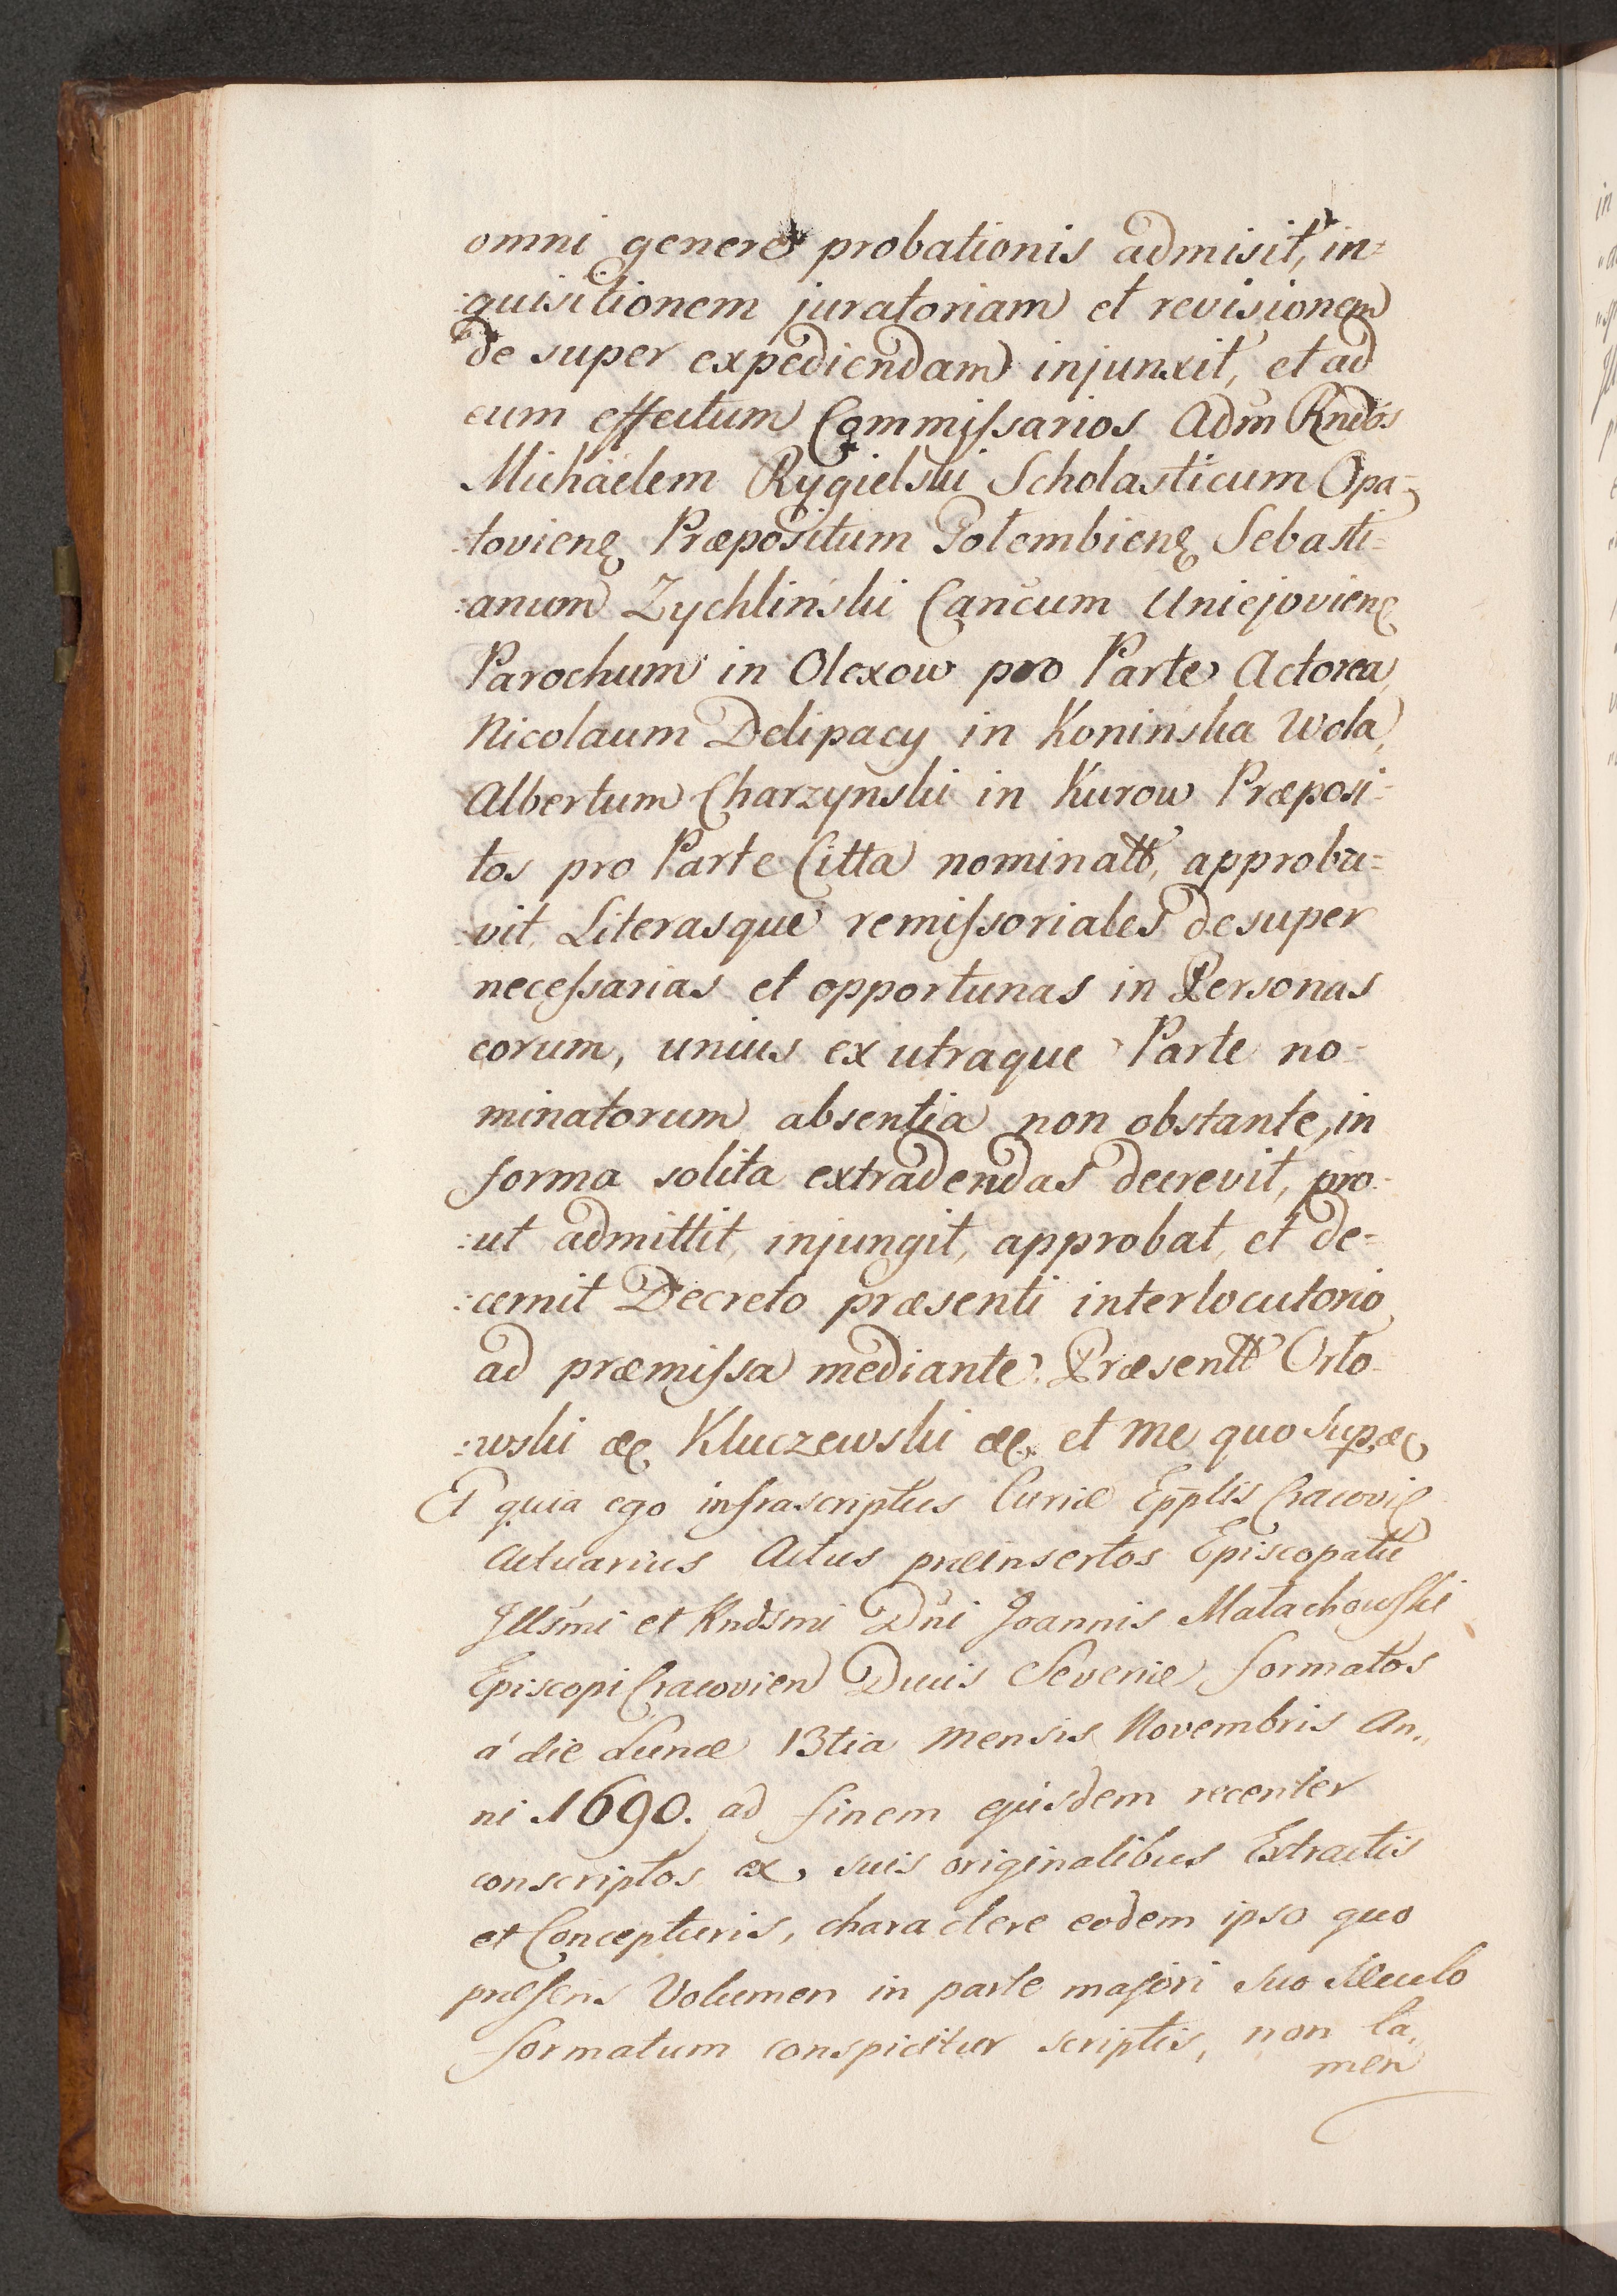 omni genere probationis admisit, in=
:quisitionem juratoriam et revisionem
de super expediendam injunxit, et ad
eum effectum Commissarios Adm Rndos
Michäelem Rygielski Scholasticum Opa=
:toviens Præpositum Gołembiens Sebasti=
:anum Zychlinski Cancum Uniejoviens
Parochum in Olexow pro Parte Actorea,
Nicolaum Delipacy in Koninska Wola,
Albertum Charzynski in Kurow Præposi=
tos pro Parte Citta nominatt, approba=
vit, Literasque remissoriales desuper
necessarias et opportunas in Personas
eorum, unius ex utraque Parte no=
minatorum absentia non obstante, in
forma solita extradendas decrevit, pro=
:ut admittit, injungit, approbat, et de=
:cernit Decreto præsenti interlocutorio
ad præmissa mediante. Præsentt Orło=
:wski &c Kluczewski &c. et me quo Sup. &c
Et quia ego infrascriptus Curiæ Epplis Cracovie
Actuarius Actus præinsertos Episcopatu
Illsmi et Rndsmi Dni Joannis Małachowski
Episcopi Cracovien Ducis Severiæ, formatos
á die Lunæ 13tia Mensis Novembris An„
ni 1690. ad finem ejusdem recenter
conscriptos ex suis originalibus Extractis
et Concepturis, charactere eodem ipso quo
præsens Volumen in parte majori suo Sæculo
formatum conspicitur scriptis, non ta„
men